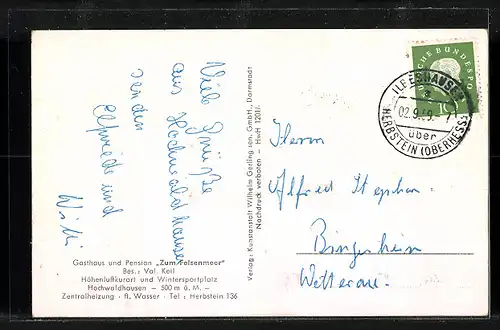 Viele Grüße
aus Hochwaldhausen
senden
Elfriede und
Willi
Gasthaus und Pension „Zum Felsenmeer"
Bes.: Val. Keil
Höhenluftkurort und Wintersportplatz
Hochwaldhausen — 500 m ü. M. —
Zentralheizung · fl. Wasser · Tel.: Herbstein 136
Verlag: Kunstanstalt Wilhelm Gerling sen. GmbH., Darmstadt
Nachdruck verboten — HwH 1201/
SCHE BUNDESPO
10
ILBESHAUSEN
a
02.9.59.
über
HERBSTEIN (OBERHESS)
Herrn
Alfred Stephan
Bingenheim
Wetterau.